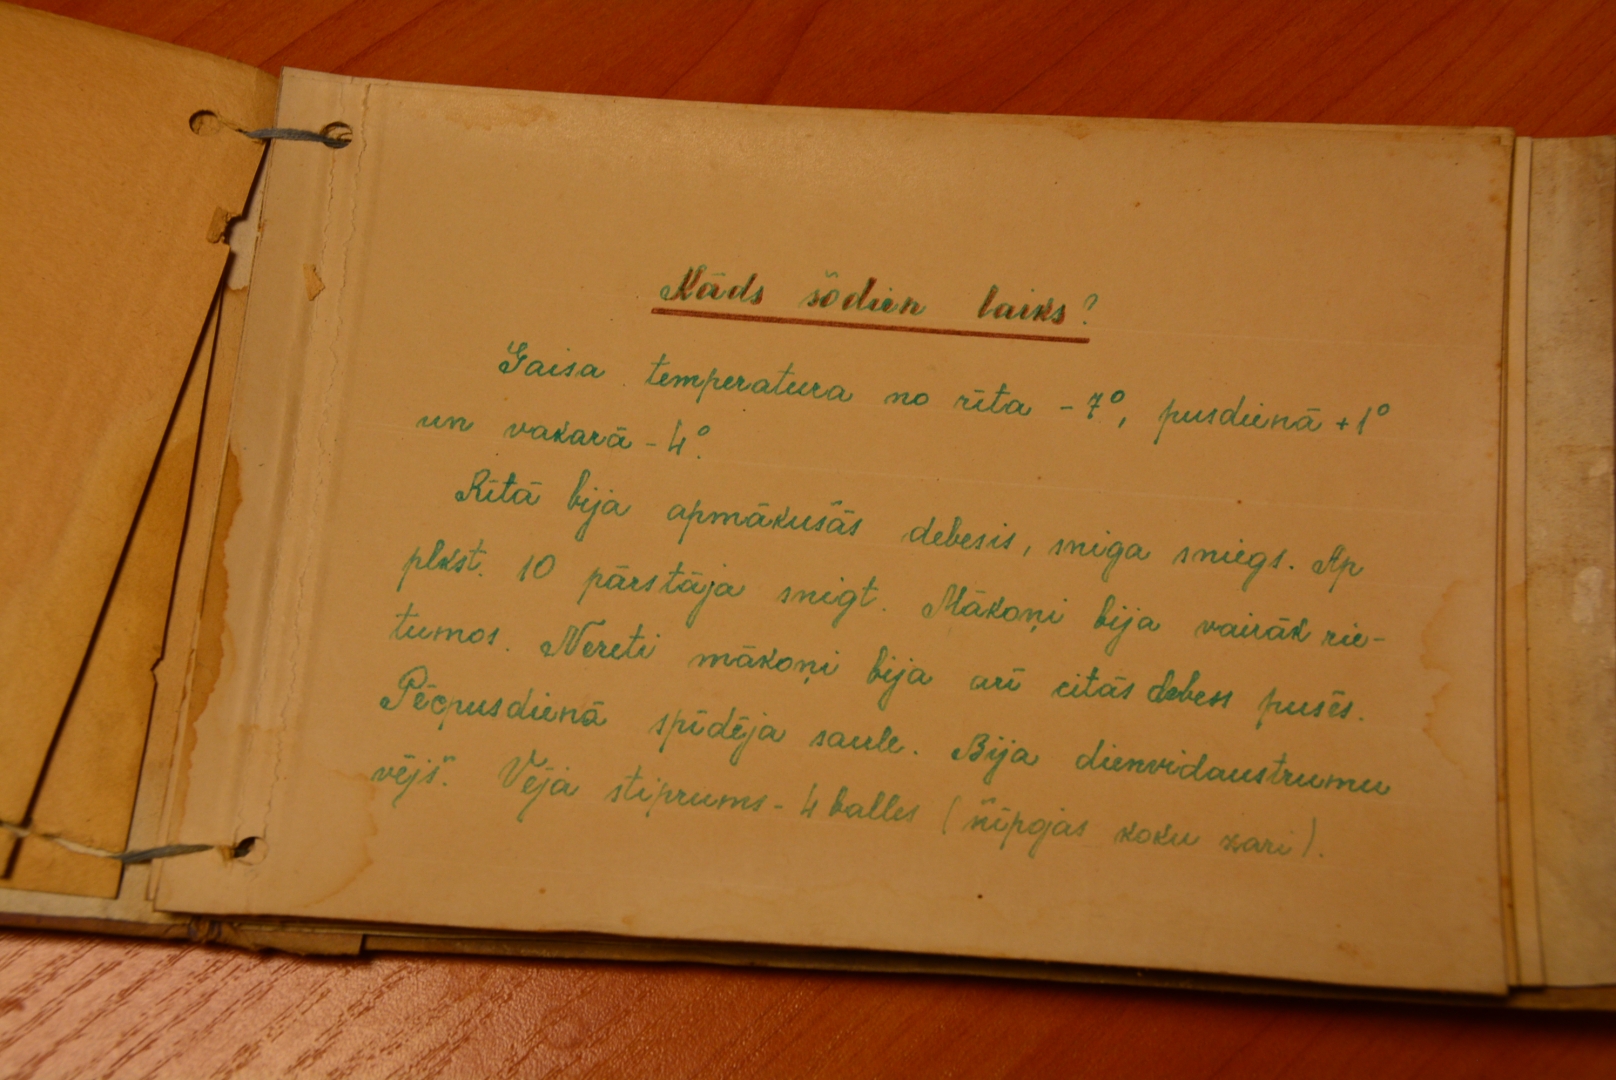 Kāds šodien laiks?
Gaisa temperatura no rīta -7°, pusdienā +1°
un vakarā - 4°.
Rītā bija apmākušās debesis, sniga sniegs. Ap
plkst. 10 pārstāja snigt. Mākoņi bija vairāk rie-
tumos. Nereti mākoņi bija arī citās debess pusēs.
Pēcpusdienā spīdēja saule. Bija dienvidaustrumu
vējš. Vēja stiprums - 4 balles (šūpojas koku zari).